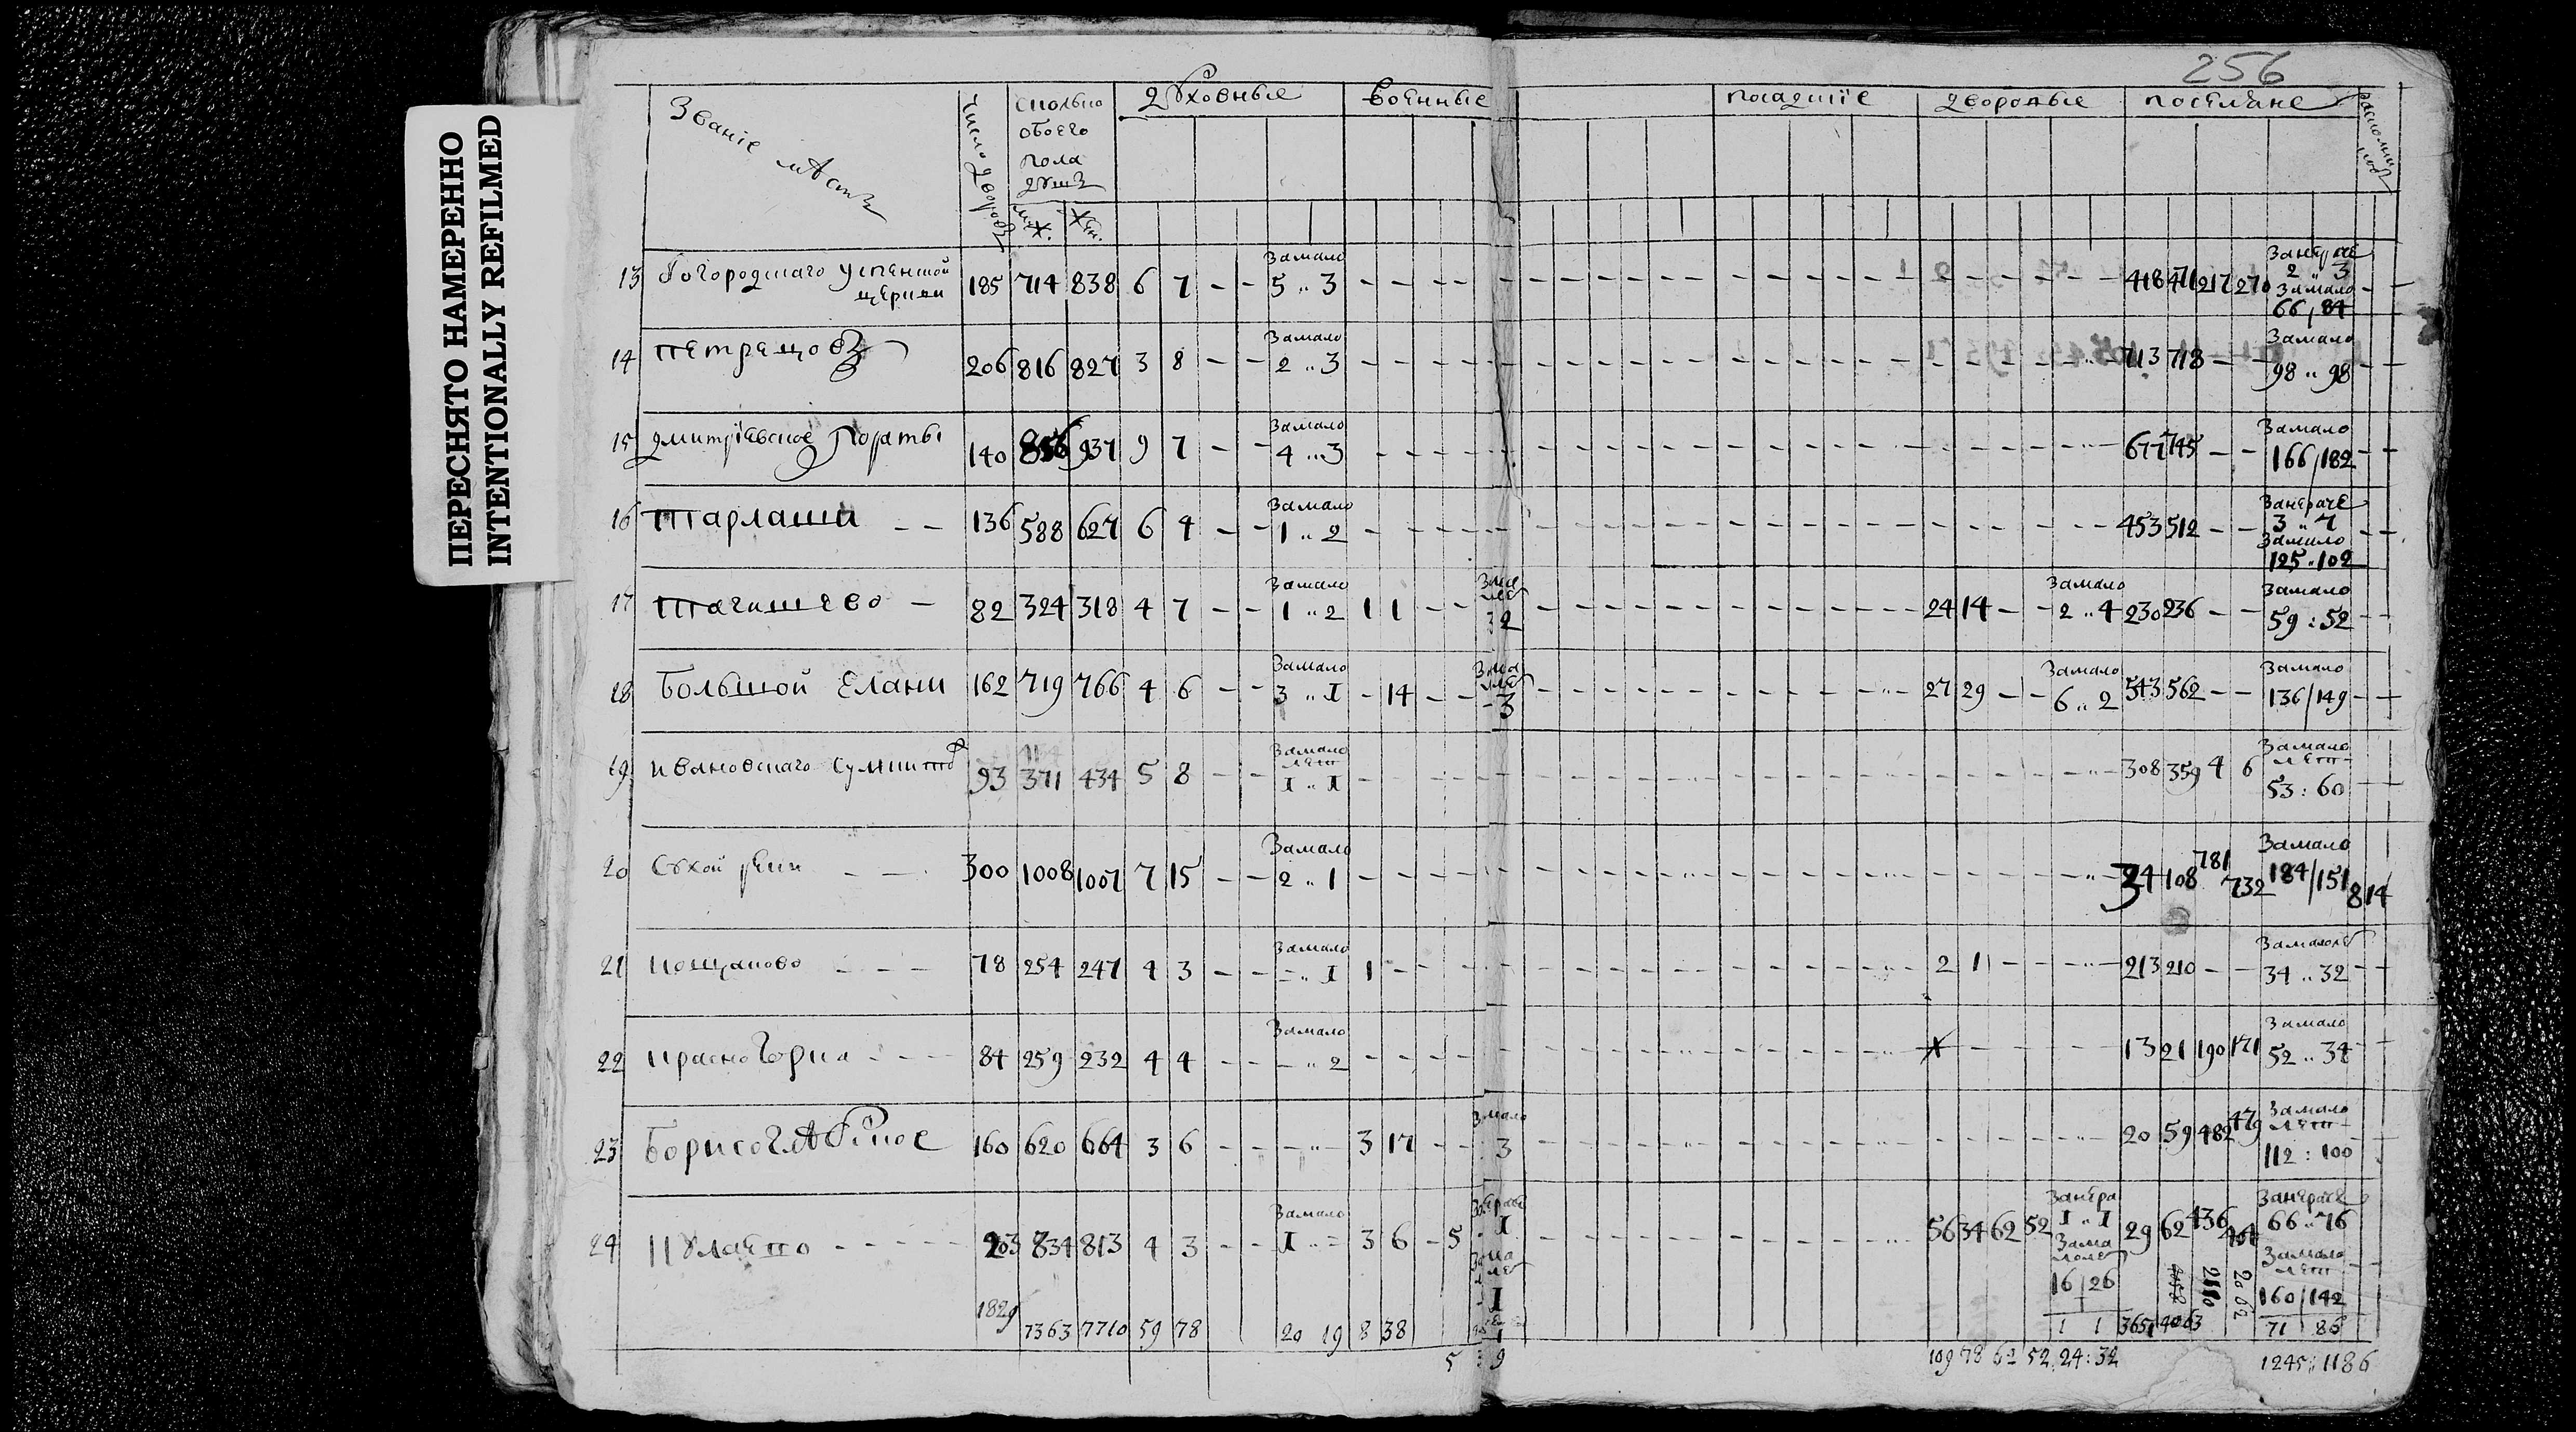 ПЕРЕСНЯТО НАМЕРЕННО
INTENTIONALLY REFILMED
256
Званіе мѣстъ
Число дворовъ
сколько обоего пола душъ
муж. жен.
духовныя
военныя
посадскіе
дворовыя
поселяне
раскольниковъ
13 Богородскаго Успенской церкви 185 714 838 6 7 - - Замало 5 „ 3 - - - - 418 471 217 270 Занебыт 2 „ 3 Замало 66 / 84 - -
14 Петрецовъ 206 816 827 3 8 - - Замало 2 „ 3 - - - - 713 718 - - Замало 98 „ 98 - -
15 Дмитріевское 140 856 937 9 7 - - Замало 4 „ 3 - - - - 677 745 - - Замало 166 / 182 - -
16 Тарлаши - - 136 588 627 6 4 - - Замало 1 „ 2 - - - - 453 512 - - 3 „ 7 Замало 125 „ 102 - -
17 Тагишево - 82 324 318 4 7 - - Замало 1 „ 2 1 1 - - 3 2 24 14 - - Замало 2 „ 4 230 236 - - Замало 59 : 52 - -
18 Большой Елани 162 719 766 4 6 - - Замало 3 „ 1 - 14 - - - 3 27 29 - - Замало 6 „ 2 543 562 - - Замало 136 / 149 - -
19 Ивановскаго 93 371 434 5 8 - - Замало лет 1 „ 1 - - - - 308 359 4 6 Замало лет 53 : 60 - -
20 Сухой реки - - 300 1008 1007 7 15 - - Замало 2 „ 1 - - - - 34 108 781 732 Замало 184 / 151 8 14
21 Кощаково - - - 78 254 247 4 3 - - Замало - „ 1 1 - - - 2 1 - - 213 210 - - Замалолет 34 „ 32 - -
22 Красногорка - - - 84 259 232 4 4 - - Замало - „ 2 - - - - 13 21 190 171 Замало 52 „ 34 - -
23 Борисоглѣбское 160 620 664 3 6 - - - „ - 3 17 - - Замало 3 20 59 482 479 Замало лет 112 : 100
24 203 834 813 4 3 - - Замало 1 „ - 3 6 - 5 1 56 34 62 52 1 „ 1 Замалолет 16 / 26 29 62 436 66 „ 76 Замало лет 160 / 142 - -
1829 7363 7710 59 78 20 19 8 38 1 1 3651 4063 2110 2062 71 86
5 9 109 78 62 52 24 : 32 1245 : 1186